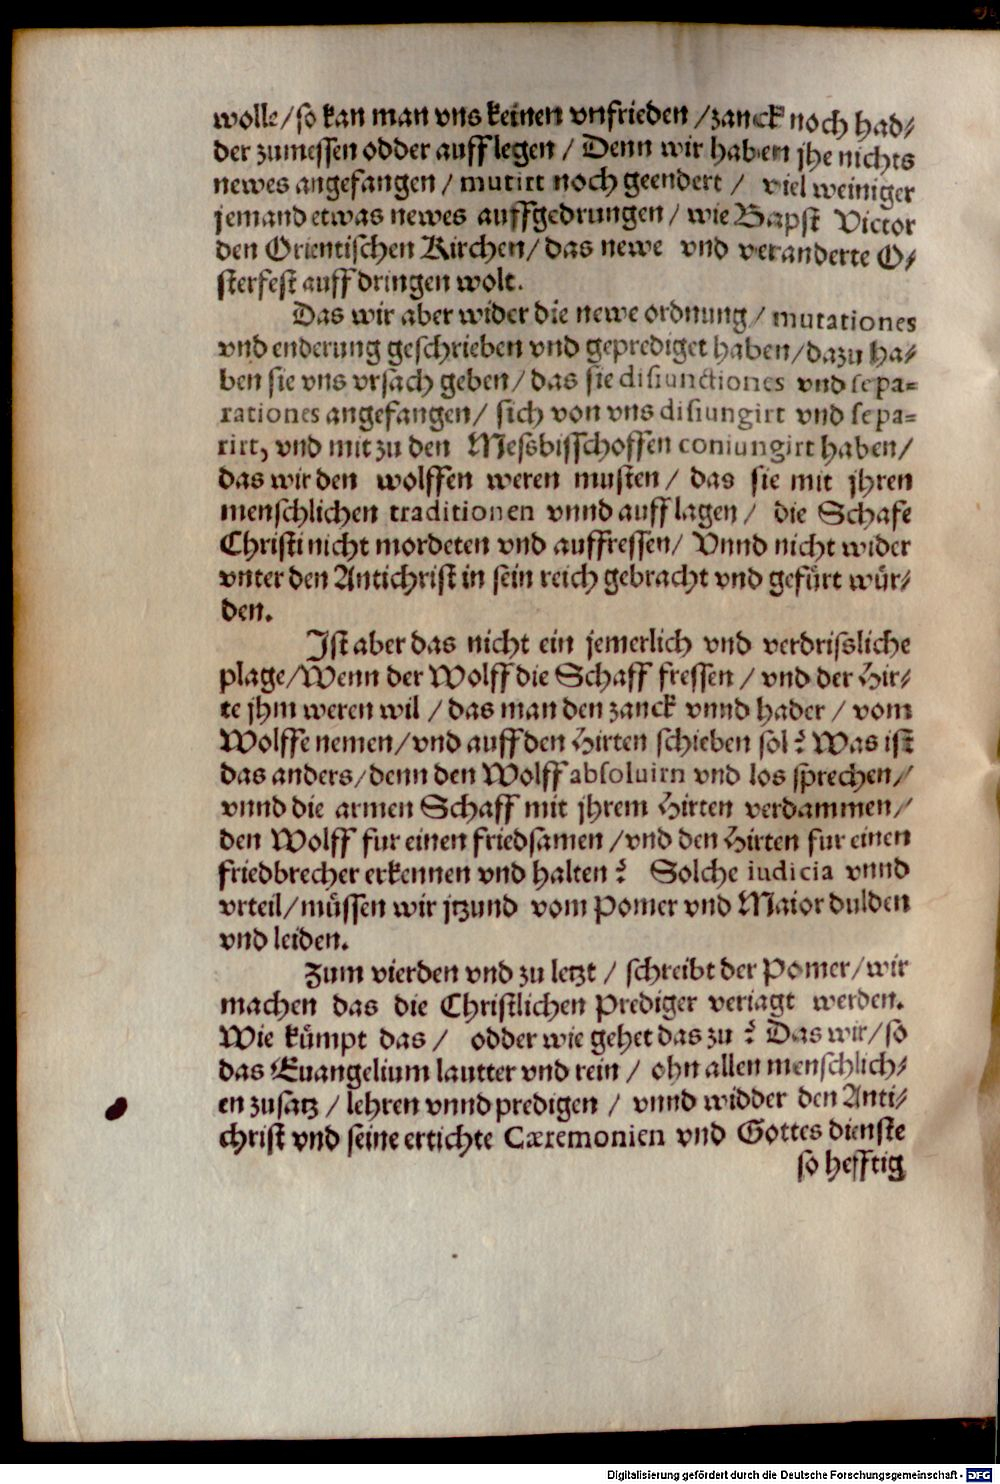 wolle/so kan man vns keinen vnfrieden /zanck noch had⸗
der zumessen odder auff legen / Denn wir haben jhe nichts
newes angefangen / mutirt noch geendert / viel weiniger
jemand etwas newes auffgedrungen / wie Bapst Victor
den Orientischen Kirchen/ das newe vnd veranderte O⸗
sterfest auff dringen wolt.
Das wir aber wider die newe ordnung/ mutationes
vnd enderung geschrieben vnd geprediget haben/dazu ha⸗
ben sie vns vrsach geben/ das sie disiunctiones vnd sepa=
rationes angefangen/ sich von vns disiungirt vnd sepa=
rirt, vnd mit zu den Messbisschoffen coniungirt haben/
das wir den wolffen weren musten/ das sie mit jhren
menschlichen traditionen vnnd auff lagen/ die Schafe
Christi nicht mordeten vnd auffressen/ Vnnd nicht wider
vnter den Antichrist in sein reich gebracht vnd gefürt wür⸗
den.
Ist aber das nicht ein jemerlich vnd verdrissliche
plage/Wenn der Wolff die Schaff fressen / vnd der Hir⸗
te jhm weren wil / das man den zanck vnnd hader / vom
Wolffe nemen/vnd auff den Hirten schieben sol? Was ist
das anders/denn den Wolff absoluirn vnd los sprechen/
vnnd die armen Schaff mit jhrem Hirten verdammen/
den Wolff fur einen friedsamen /vnd den Hirten fur einen
friedbrecher erkennen vnd halten? Solche iudicia vnnd
vrteil/müssen wir jtzund vom Pomer vnd Maior dulden
vnd leiden.
Zum vierden vnd zu letzt / schreibt der Pomer/wir
machen das die Christlichen Prediger veriagt werden.
Wie kümpt das / odder wie gehet das zu? Das wir/so
das Euangelium lautter vnd rein / ohn allen menschlich⸗
en zusatz / lehren vnnd predigen / vnnd widder den Anti⸗
christ vnd seine ertichte Cæremonien vnd Gottes dienste
so hefftig
Digitalisierung gefördert durch die Deutsche Forschungsgemeinschaft - DFG